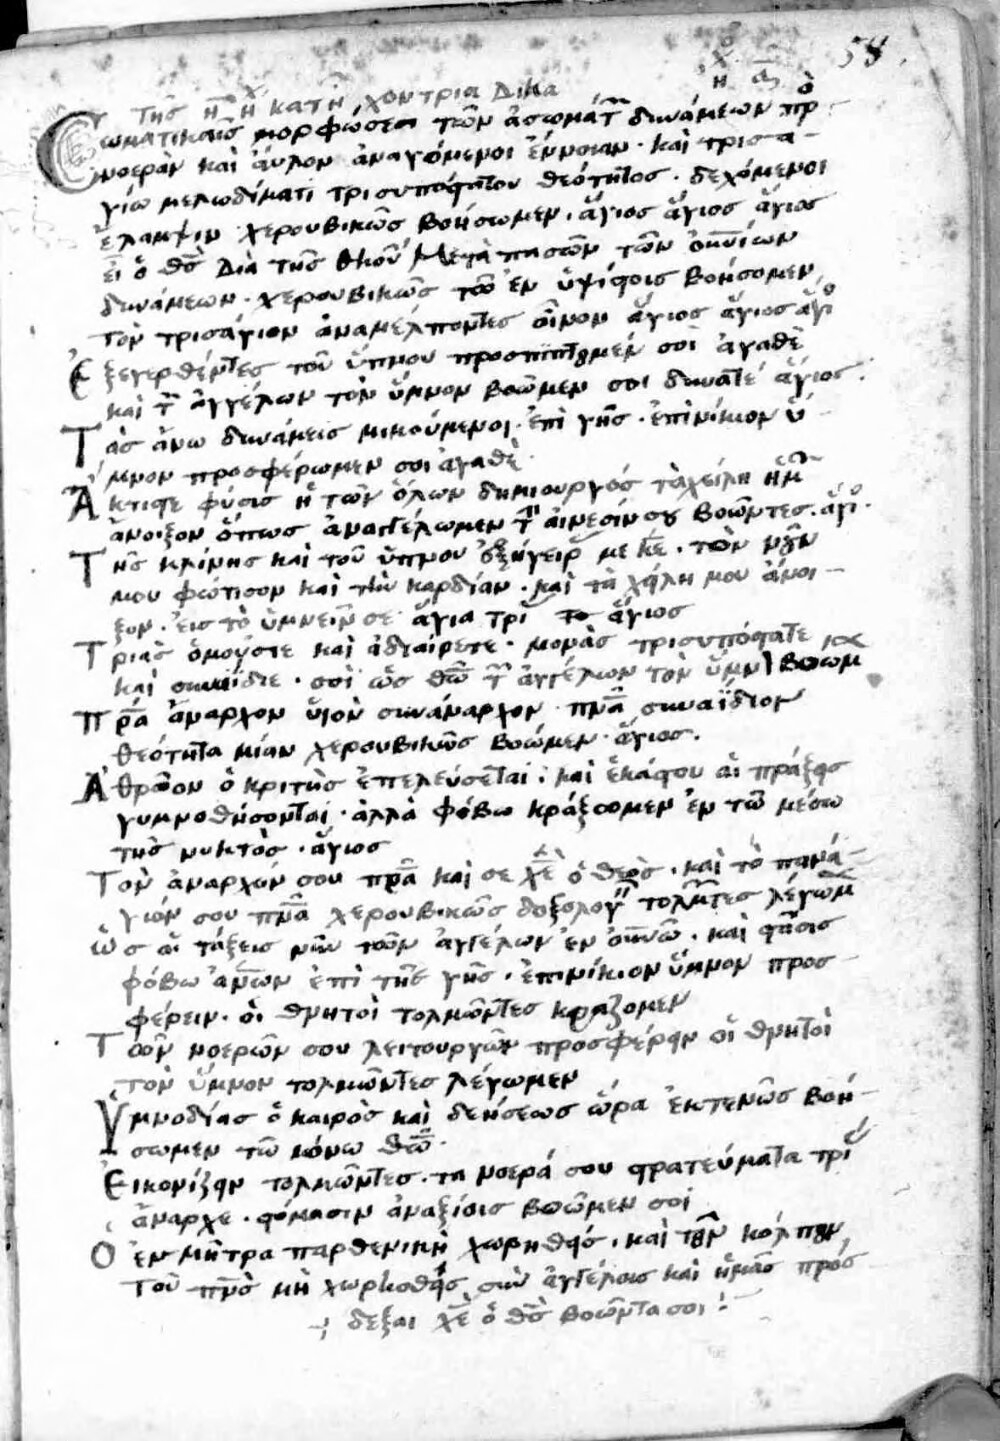 58
Τῆς κατη χον τριαδικα
Σωματικαῖς μορφώσεσι τῶν ἀσωμάτ δυνάμεων πρ
νοερὰν καὶ ἄϋλον ἀναγόμενοι ἔννοιαν · καὶ τρισα-
γίω μελωδίματι τρισυποστάτου θεότητος · δεχόμενοι
ἔλαμψιν χερουβικῶς βοήσωμεν · ἅγιος ἅγιος ἅγιος
εἶ ὁ θς Διὰ τῆς θκου Μετὰ πασῶν τῶν οὐνίων
δυνάμεων · χερουβικῶς τῶ ἐν ὑψίστοις βοήσομεν
τὸν τρισάγιον ἀναμέλποντες αἶνον ἅγιος ἅγιος ἅγι
Ἐξεγερθέντες τοῦ ὕπνου προσπίπτομέν σοὶ ἀγαθὲ
καὶ τ ἀγγέλων τὸν ὕμνον βοῶμεν σοι δυνατέ ἅγιος ·
Τὰς ἄνω δυνάμεις μιμούμενοι · ἐπὶ γῆς · ἐπινίκιον ὕ-
μνον προσφέρωμεν σοι ἀγαθὲ ·
Ἄκτιστε φύσις ἡ τῶν ὅλων δημιουργός τὰ χείλη ἡμ
ἄνοιξον ὅπως ἀναγγέλωμεν τ αἴνεσίν σου βοῶντες · ἅγι ·
Τῆς κλίνης καὶ τοῦ ὕπνου ἐξήγειρ με κε · τὸν νοῦν
μου φώτισον καὶ τὴν καρδίαν · καὶ τὰ χείλη μου ἄνοι-
ξον · εἰς τὸ ὑμνεῖν σε ἅγια τρι ἅγιος
Τριὰς ὁμοούσιε καὶ ἀδιαίρετε · μονὰς τρισυπόστατε
καὶ συναΐδιε · σοὶ ὡς θῶ τ ἀγγέλων τὸν ὕμν βοωμ
Πρα ἄναρχον ὑιὸν συνάναρχον πνα συναΐδιον
θεότητα μίαν χερουβικῶς βοώμεν · ἅγιος ·
Ἀθρόον ὁ κριτὴς ἐπελεύσεται · καὶ ἑκάστου αἱ πράξεις
γυμνοθήσονται · ἀλλὰ φόβω κράξωμεν ἐν τῶ μέσω
τῆς νυκτὸς · ἅγιος
Τὸν ἄναρχόν σου πρα καὶ σε χε ὁ θεὸς · καὶ τὸ πανά-
γιόν σου πνα χερουβικῶς δοξολογ τολμτες λέγωμ
Ὡς αἱ τάξεις νῦν τῶν ἀγγέλων ἐν οὐνῶ · καὶ στάσις
φόβω ἀνων ἐπὶ τῆς γῆς · ἐπινίκιον ὕμνον προσ-
φέρειν · οἱ θνητοὶ τολμῶντες κράζομεν
Τῶν νοερῶν σου λειτουργῶν προσφέρειν οἱ θνητοὶ
τὸν ὕμνον τολμῶντες λέγωμεν
Ὑμνοδίας ὁ καιρὸς καὶ δεήσεως ὥρα ἐκτενῶς βοή-
σωμεν τῶ μόνω θῶ ·
Εἰκονίζειν τολμῶντες · τα νοερά σου στρατεύματα τρι
ἄναρχε · στόμασιν ἀναξίοις βοῶμεν σοι
Ὁ ἐν μήτρα παρθενικῆ χωρηθεὶς · καὶ τῶν κόλπων
τοῦ πρς μὴ χωρισθεὶς σὺν ἀγγέλοις καὶ ἡμᾶς πρόσ
δεξαι χε ὁ θς βοῶντα σοι :